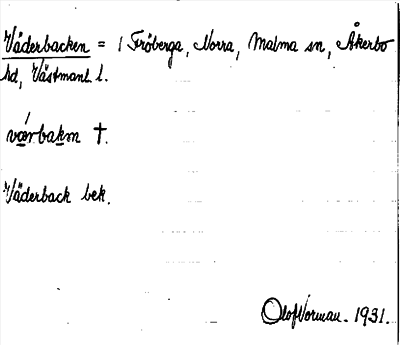 Väderbacken = 1 Fröberga, Norra, Malma sn, Åkerbo
hd, Västmanl. l.
væ̀rbakm †.
Väderback bek.
Olof Norman. 1931.